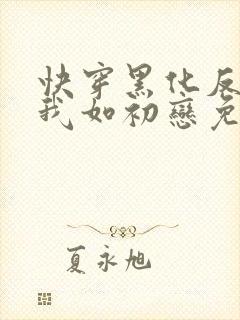 快穿黑化反
我如初戀免
夏永旭